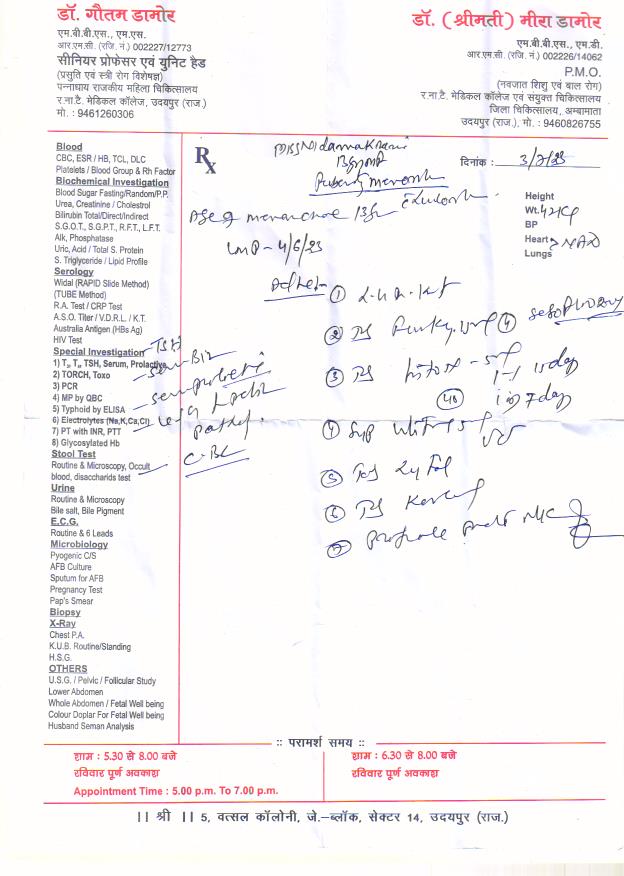 डॉ. गौतम डामोर
एम.बी.बी.एस., एम.एस.
आर.एम.सी. (रजि. नं.) 002227/12773
सीनियर प्रोफेसर एवं युनिट हैड
(प्रसुति एवं स्त्री रोग विशेषज्ञ)
पन्नाधाय राजकीय महिला चिकित्सालय
र.ना.टै. मेडिकल कॉलेज, उदयपुर (राज.)
मो. : 9461260306
डॉ. (श्रीमती) मीरा डामोर
एम.बी.बी.एस., एम.डी.
आर.एम.सी. (रजि. नं.) 002226/14062
P.M.O.
(नवजात शिशु एवं बाल रोग)
र.ना.टै. मेडिकल कॉलेज एवं संयुक्त चिकित्सालय
जिला चिकित्सालय, अम्बामाता
उदयपुर (राज.). मो. : 9460826755
Blood
CBC, ESR / HB, TCL, DLC
Platelets / Blood Group & Rh Factor
Biochemical Investigation
Blood Sugar Fasting/Random/P.P.
Urea, Creatinine / Cholestrol
Bilirubin Total/Direct/Indirect
S.G.O.T., S.G.P.T., R.F.T., L.F.T.
Alk, Phosphatase
Uric, Acid / Total S. Protein
S. Triglyceride / Lipid Profile
Serology
Widal (RAPID Slide Method)
(TUBE Method)
R.A. Test / CRP Test
A.S.O. Titer / V.D.R.L. / K.T.
Australia Antigen (HBs Ag)
HIV Test
Special Investigation
TSH
1) T₃, T₄, TSH, Serum, Prolactive
2) TORCH, Toxo
3) PCR
4) MP by QBC
5) Typhoid by ELISA
6) Electrolytes (Na,K,Ca,Cl)
7) PT with INR, PTT
8) Glycosylated Hb
CBC
Stool Test
Routine & Microscopy, Occult
blood, disaccharids test
Urine
Routine & Microscopy
Bile salt, Bile Pigment
E.C.G.
Routine & 6 Leads
Microbiology
Pyogenic C/S
AFB Culture
Sputum for AFB
Pregnancy Test
Pap's Smear
Biopsy
X-Ray
Chest P.A.
K.U.B. Routine/Standing
H.S.G.
OTHERS
U.S.G. / Pelvic / Follicular Study
Lower Abdomen
Whole Abdomen / Fetal Well being
Colour Doplar For Fetal Well being
Husband Seman Analysis
Rx
दिनांक : 3/7/23
Height
Wt. 42 kg
BP
Heart
Lungs NAD
Age of menarchae 13
LMP - 4/6/23
①
②
③
④
⑤
⑥
⑦
:: परामर्श समय ::
शाम : 5.30 से 8.00 बजे
रविवार पूर्ण अवकाश
Appointment Time : 5.00 p.m. To 7.00 p.m.
शाम : 6.30 से 8.00 बजे
रविवार पूर्ण अवकाश
|| श्री || 5, वत्सल कॉलोनी, जे.–ब्लॉक, सेक्टर 14, उदयपुर (राज.)